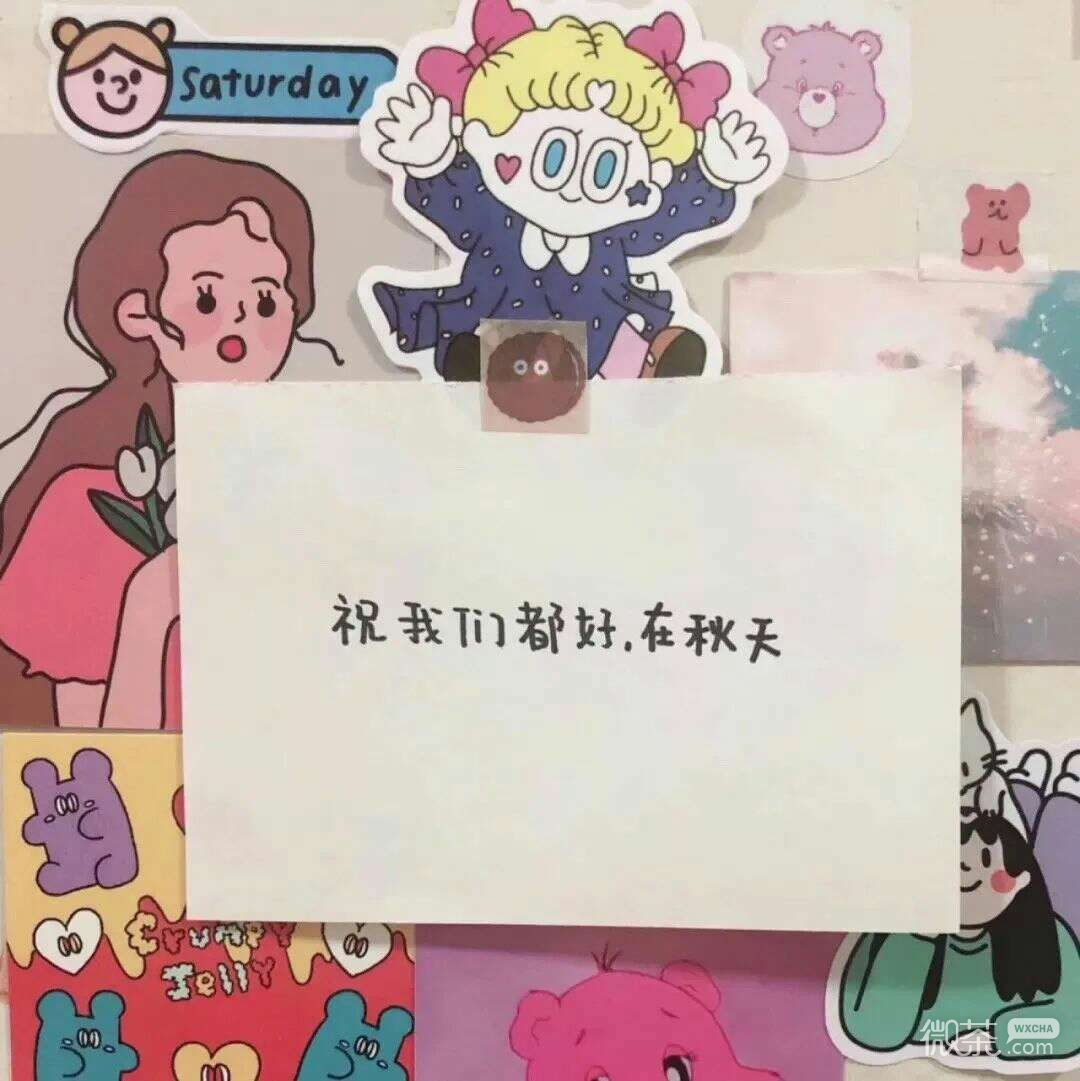 Saturday
祝我们都好.在秋天
Grumpy
Jelly
微茶
WXCHA
.com